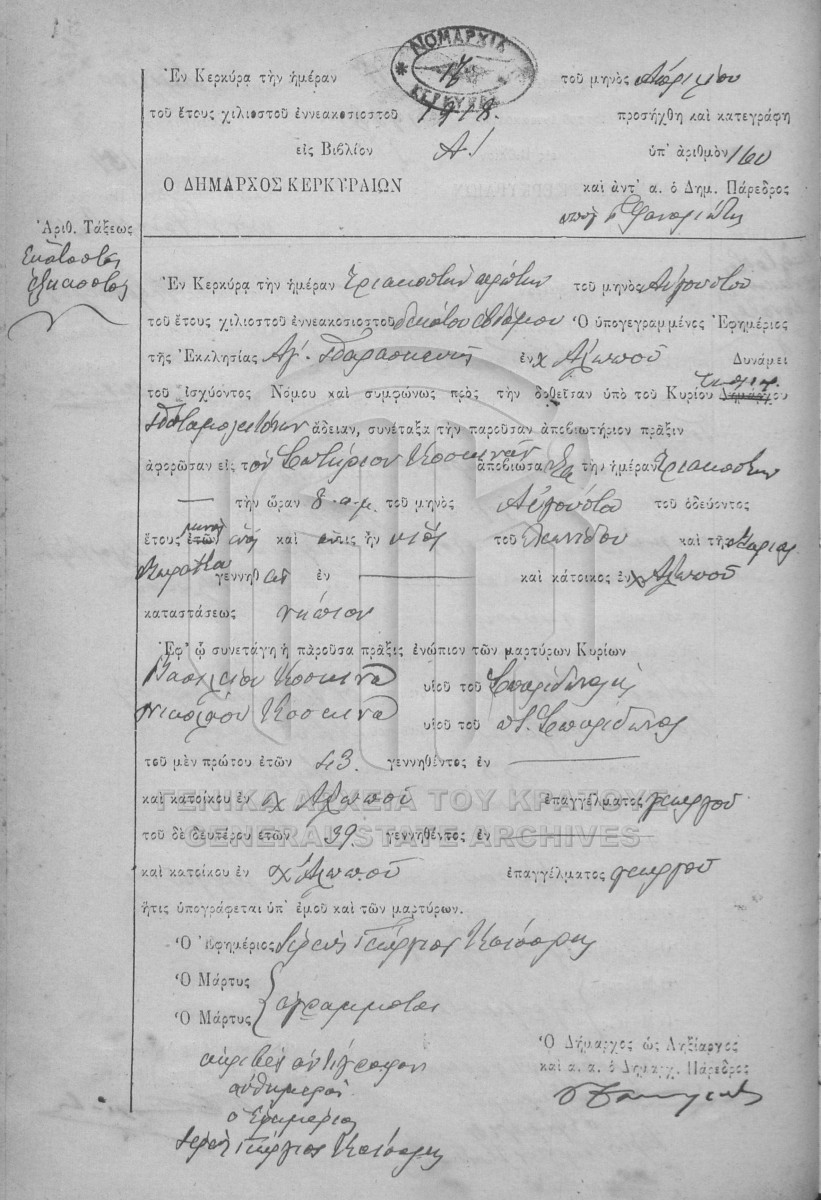 ΝΟΜΑΡΧΙΑ
ΚΕΡΚΥΡΑΣ
Ἐν Κερκύρᾳ τὴν ἡμέραν 17 τοῦ μηνὸς Ἀπριλίου
τοῦ ἔτους χιλιοστοῦ ἐννεακοσιοστοῦ 1918. προσήχθη καὶ κατεγράφη
εἰς Βιβλίον Α! ὑπ' ἀριθμὸν 160
Ο ΔΗΜΑΡΧΟΣ ΚΕΡΚΥΡΑΙΩΝ καὶ ἀντ' α. ὁ Δημ. Πάρεδρος
Ἀριθ. Τάξεως
Ἑκατοστὸς
ἑξηκοστὸς
Ἐν Κερκύρᾳ τὴν ἡμέραν τριακοστὴν πρώτην τοῦ μηνὸς Αὐγούστου
τοῦ ἔτους χιλιοστοῦ ἐννεακοσιοστοῦ δεκάτου ἑβδόμου Ὁ ὑπογεγραμμένος Ἐφημέριος
τῆς Ἐκκλησίας Ἁγ. Παρασκευῆς ἐν χ Ἀλεποῦ Δυνάμει
τοῦ ἰσχύοντος Νόμου καὶ συμφώνως πρὸς τὴν δοθεῖσαν ὑπὸ τοῦ Κυρίου Δημάρχου
Ποταμογειτόνων ἄδειαν, συνέταξα τὴν παροῦσαν ἀποβιωτήριον πρᾶξιν
ἀφορῶσαν εἰς τὸν Σωτήριον Κοσκινᾶν ἀποβιώσαντα τὴν ἡμέραν τριακοστὴν
τὴν ὥραν 8 π.μ. τοῦ μηνὸς Αὐγούστου τοῦ ὁδεύοντος
ἔτους ἐτῶν μηνὸς ἑνὸς καὶ ὅστις ἦν υἱὸς τοῦ Λεωνίδου καὶ τῆς Μαρίας
γεννηθὲν ἐν καὶ κάτοικος ἐν χ Ἀλεποῦ
καταστάσεως νήπιον
Ἐφ' ᾧ συνετάγη ἡ παροῦσα πρᾶξις ἐνώπιον τῶν μαρτύρων Κυρίων
Βασιλείου Κοσκινᾶ υἱοῦ τοῦ Σπυρίδωνος
Νικολάου Κοσκινᾶ υἱοῦ τοῦ π. Σπυρίδωνος
τοῦ μὲν πρώτου ἐτῶν 43 γεννηθέντος ἐν
καὶ κατοίκου ἐν χ Ἀλεποῦ ἐπαγγέλματος γεωργοῦ
ΓΕΝΙΚΑ ΑΡΧΕΙΑ ΤΟΥ ΚΡΑΤΟΥΣ
τοῦ δὲ δευτέρου ἐτῶν 39 γεννηθέντος ἐν
GENERAL STATE ARCHIVES
καὶ κατοίκου ἐν χ Ἀλεποῦ ἐπαγγέλματος γεωργοῦ
ἥτις ὑπογράφεται ὑπ' ἐμοῦ καὶ τῶν μαρτύρων.
Ὁ Ἐφημέριος Ἱερεὺς Γεώργιος Κατσαρὸς
Ὁ Μάρτυς
Ὁ Μάρτυς ἀγράμματοι
Ὁ Δήμαρχος ὡς Ληξίαρχος
καὶ α. α. ὁ Δημαρχ. Πάρεδρος
ἀκριβὲς ἀντίγραφον
αὐθημερὸν
ὁ Ἐφημέριος
Ἱερεὺς Γεώργιος Κατσαρὸς